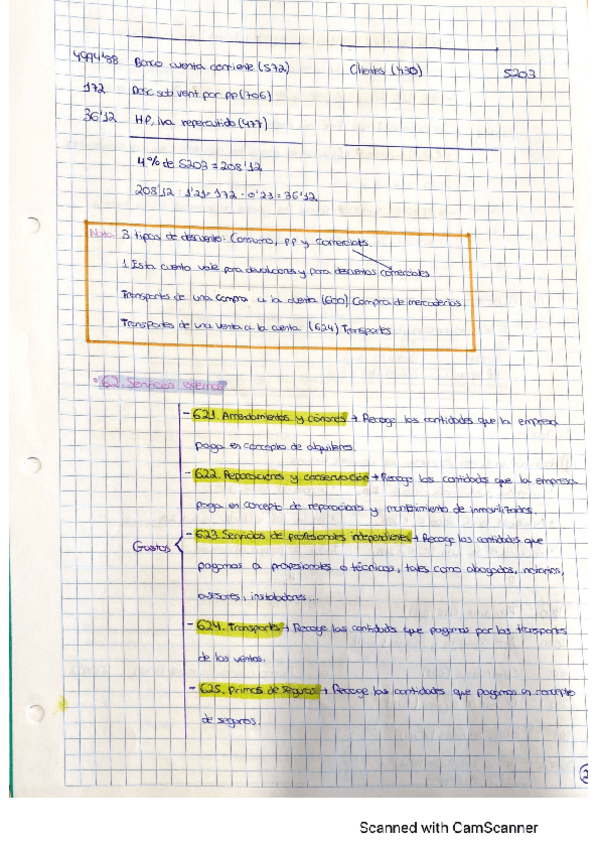 4994'88 Banco cuenta corriente (572) Clientes (430) 5203
172 Desc sub vent por pp (706)
36'12 HP, iva repercutido (477)
4% de 5203 = 208'12
208'12 : 1'21 = 172 · 0'21 = 36'12
Nota: 3 tipos de descuento. Consumo, PP y comerciales.
1 Esta cuenta vale para devoluciones y para descuentos comerciales
Transportes de una compra a la cuenta (600) Compra de mercaderías.
Transportes de una venta a la cuenta (624) Transportes
62. Servicios externos
Gastos
- 621. Arrendamientos y cánones → Recoge las cantidades que la empresa
paga en concepto de alquileres.
- 622. Reparaciones y conservación → Recoge las cantidades que la empresa
paga en concepto de reparaciones y mantenimiento de inmovilizados.
- 623. Servicios de profesionales independientes → Recoge las cantidades que
pagamos a profesionales o técnicos, tales como abogados, notarios,
asesores, instaladores...
- 624. Transportes → Recoge las cantidades que pagamos por los transportes
de las ventas.
- 625. Primas de seguros → Recoge las cantidades que pagamos en concepto
de seguros.
2
Scanned with CamScanner